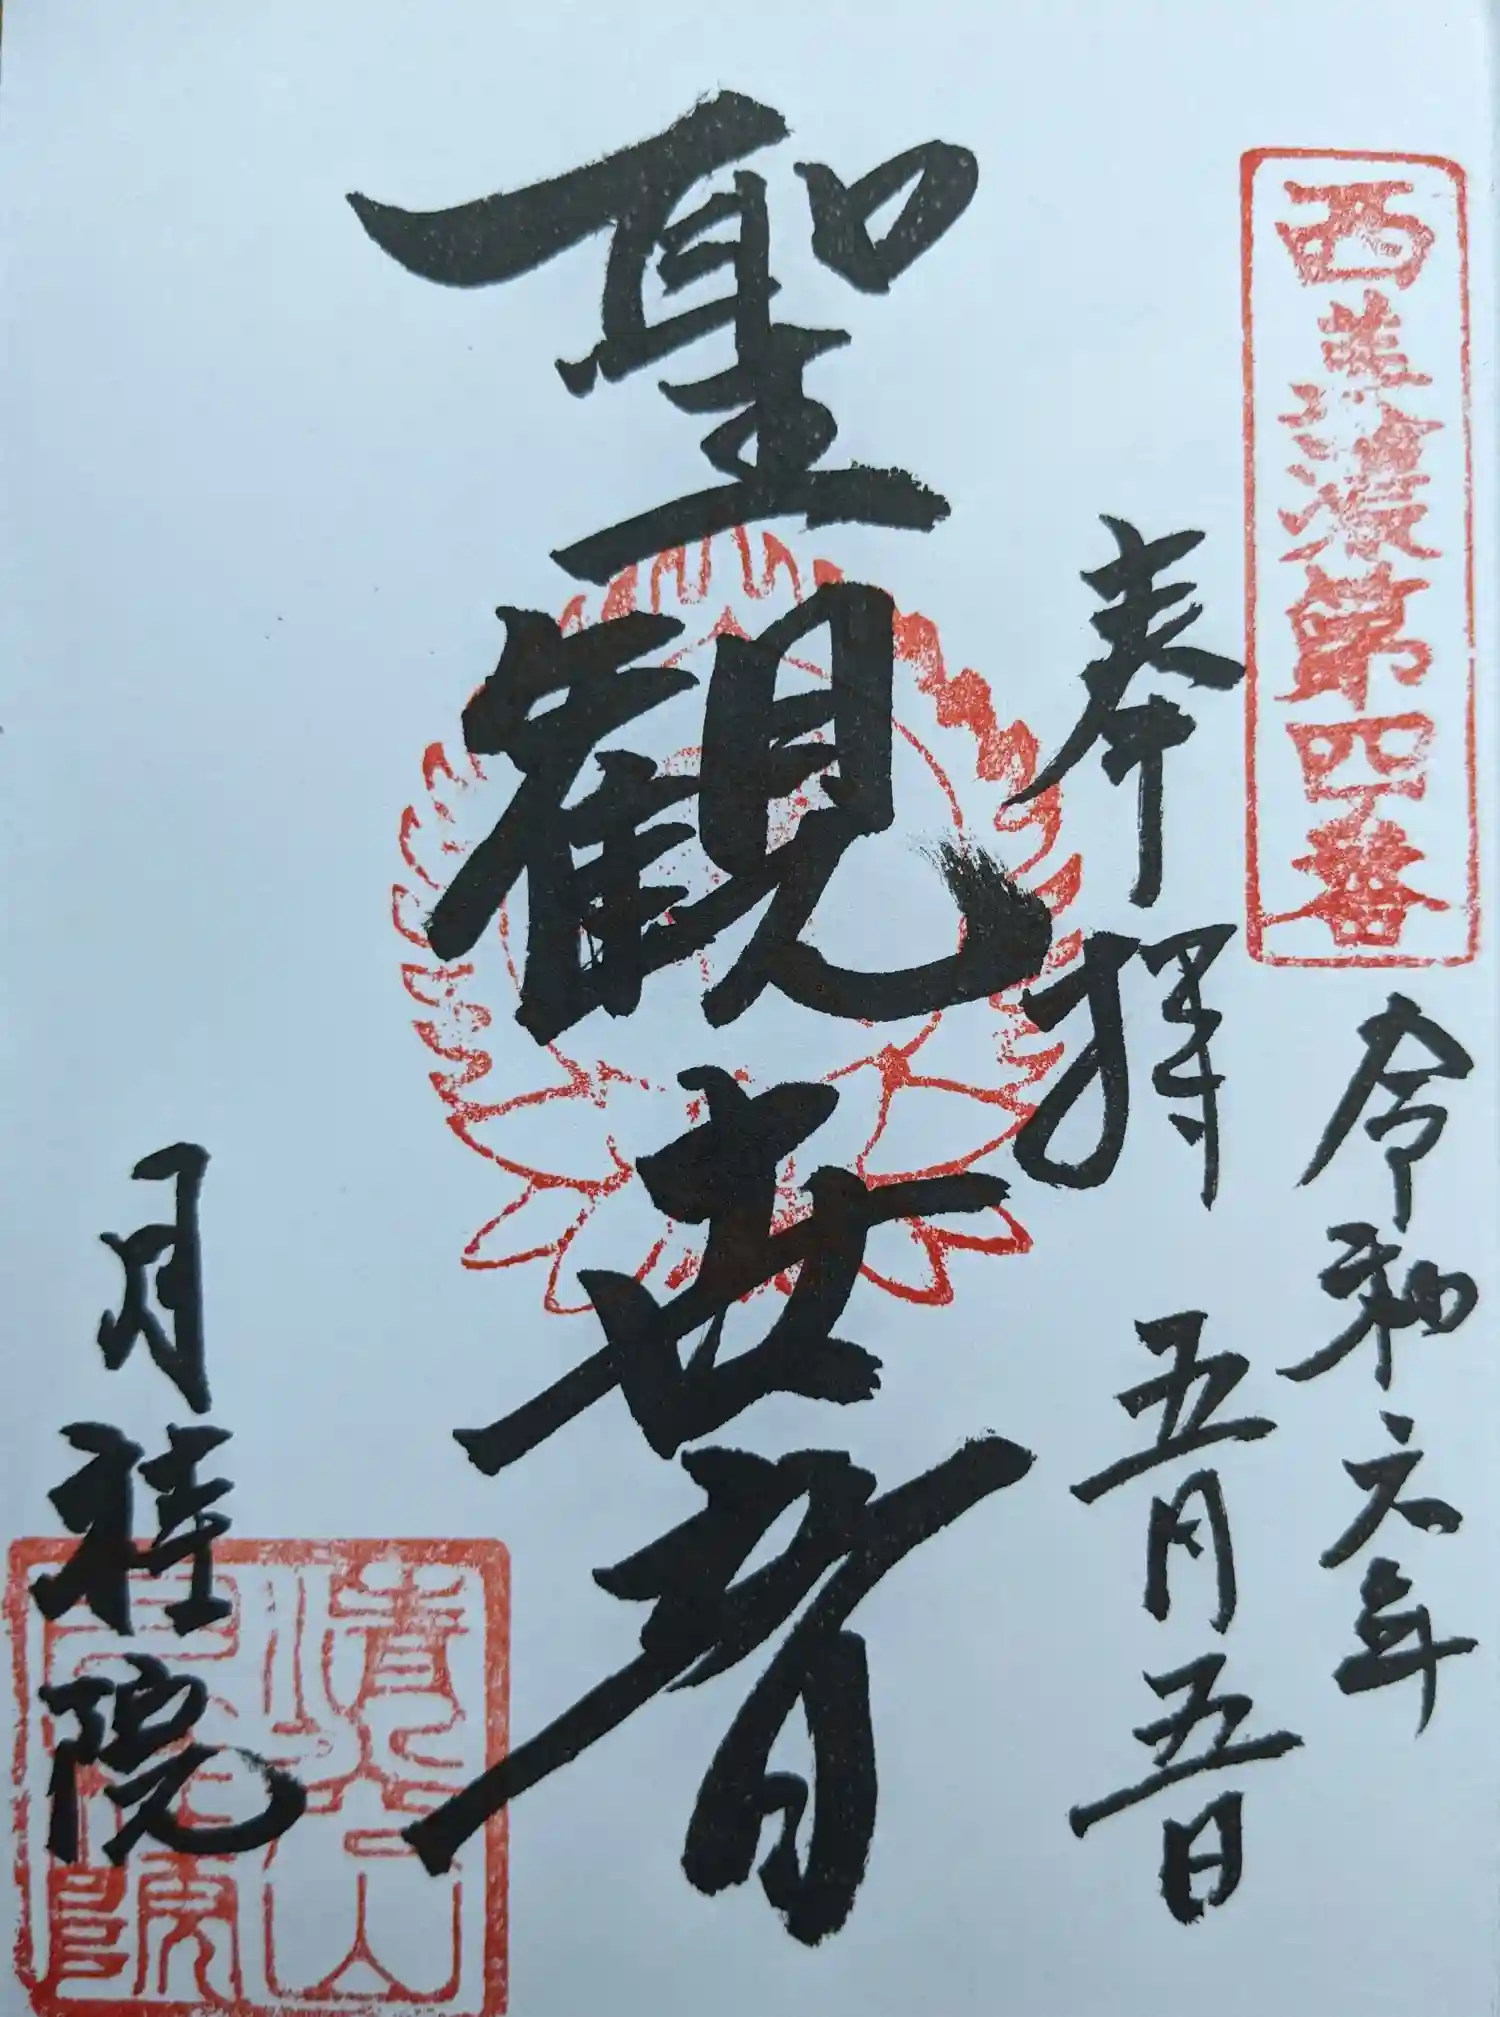 西美濃第四番
令和六年
奉拝
五月五日
聖観世音
月桂院